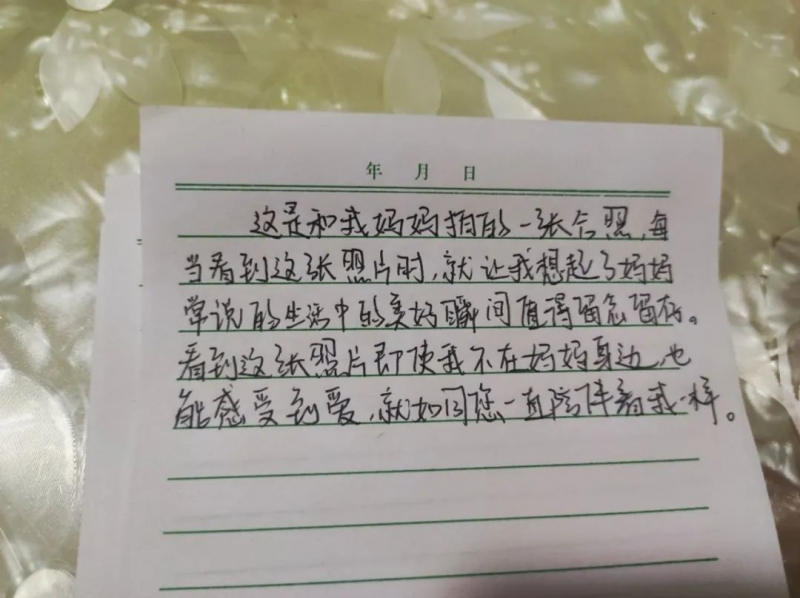 年 月 日
这是和我妈妈拍的一张合照,每
当看到这张照片时,就让我想起了妈妈
常说的生活中的美好瞬间值得留念留存。
看到这张照片即使我不在妈妈身边,也
能感受到爱,就如同您一直陪伴着我一样。